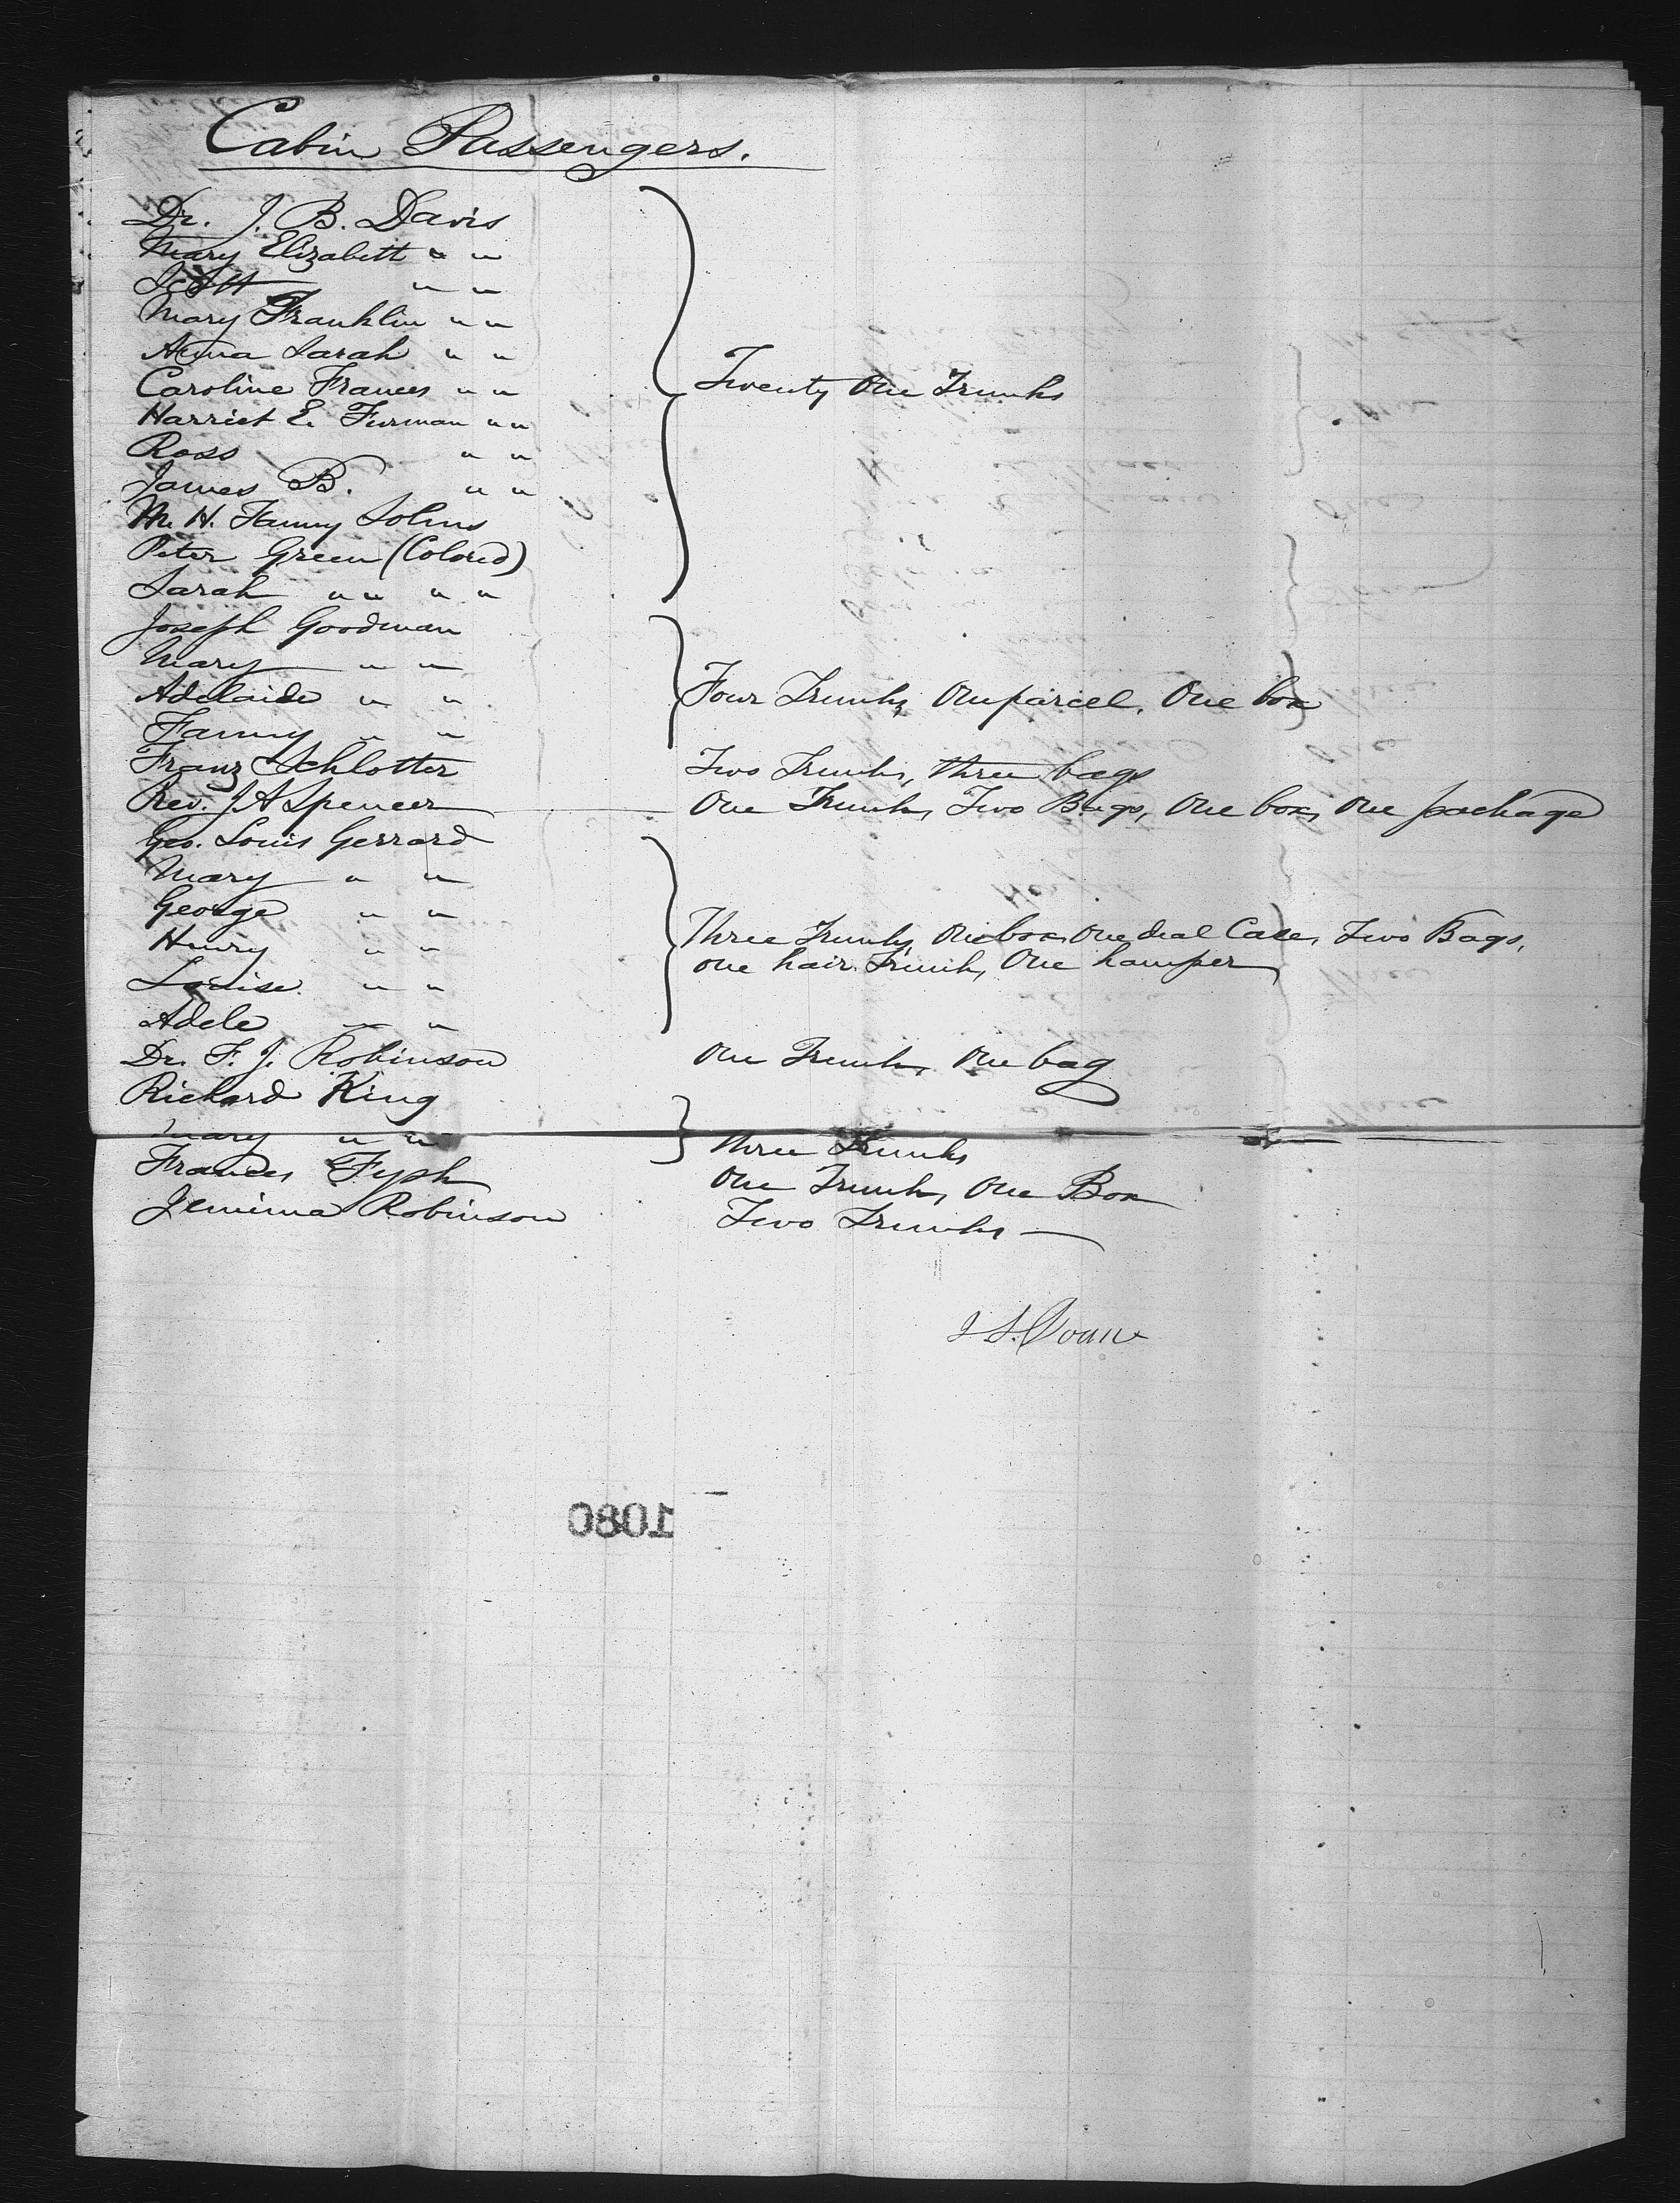 Cabin Passengers.
Dr. J. B. Davis
Mary Elizabeth " "
Scott " "
Mary Franklin " "
Anna Sarah " "
Caroline Frances " " Twenty One Trunks
Harriet E. Furman " "
Ross " "
James B. " "
M. H. Fanny Johns
Peter Green (Colored)
Sarah " " " "
Joseph Goodman
Mary " "
Adelaide " " Four Trunks, One parcel, One box
Fanny " "
Franz Schlotter Two Trunks, three bags
Rev. J. A Spencer One Trunk, Two Bags, One box, One package
Geo. Louis Gerrard
Mary " "
George " "
Henry " " Three Trunks, One box, One deal Case, Two Bags,
Louise " " one hair Trunk, One hamper
Adele " "
Dr. F. J. Robinson One Trunk, One bag
Richard King
Mary " " three Trunks
Frances Fysh One Trunk, One Box
Jemima Robinson Two Trunks
1080